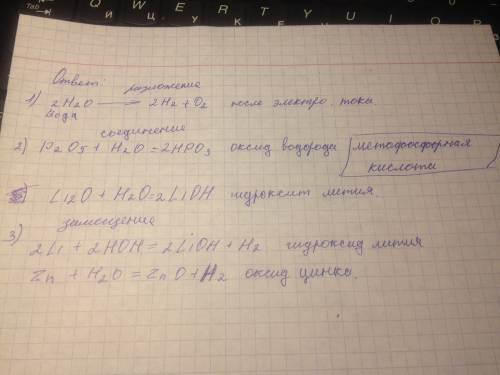 Tab Q W E R T Y U I O P
Й Ц У К
Ответ:
разложение
1) 2H₂O — 2H₂ + O₂ после электро. тока.
вода
соединение
2) P₂O₅ + H₂O = 2HPO₃ оксид водорода метафосфорная
кислота
Li₂O + H₂O = 2LiOH гидроксит лития.
замещение
3)
2Li + 2HOH = 2LiOH + H₂ гидроксид лития
Zn + H₂O = ZnO + H₂ оксид цинка.